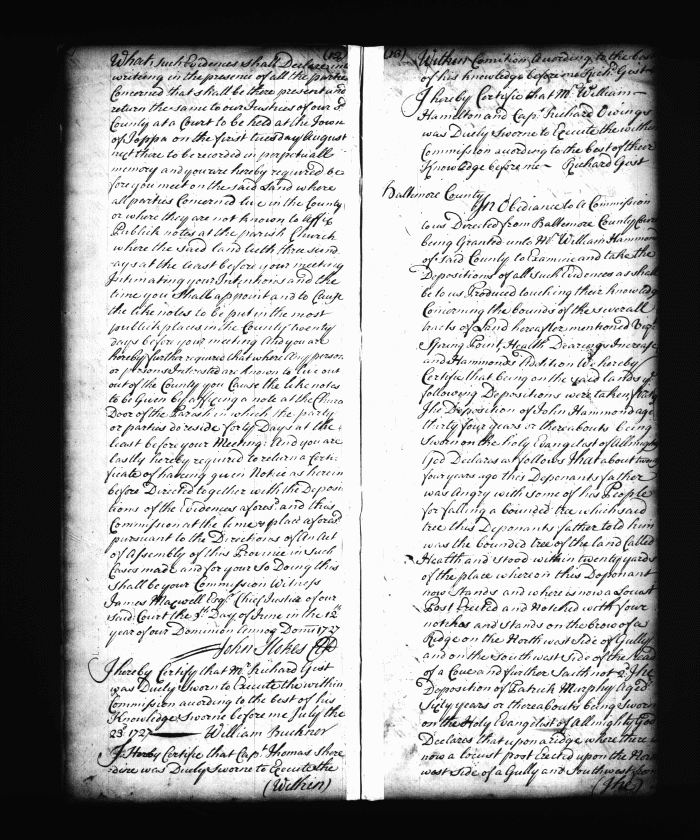 (12)
What such Evidences shall Declare in
writeing in the presence of all the parties
Concerned that shall be there present and
return the same to our Justices of our sd
County at a Court to be held at the Town
of Joppa on the first tuesday August
next there to be recorded in perpetuall
memory and you are hereby required be
fore you meet on the said Land where
all parties Concerned live in the County
or where they are not known to affix
Publick notes at the parish Church
where the said land lieth three sund
ays at the least before your meeting
Intimating your Intentions and the
time you shall appoint and to Cause
the like notes to be put in the most
publick places in the County twenty
days before your meeting And you are
hereby further required that where any person
or persons Intrested are known to live out
out of the County you Cause the like notes
to be Given by affixing a note at the Church
Door of the Parish in which the party
or parties do reside forty Days at the
least before your Meeting And you are
lastly hereby required to return a Certi
ficate of having given Notice as herein
before Directed together with the Deposi
tions of the Evidences aforesd. and this
Commission at the time & place aforesd
pursuant to the Directions of an Act
of Assembly of this Province in such
Cases made and for your so Doing this
shall be your Commission Witness
James Maxwell Esqr. Chief Justice of our
said Court the 3d. Day of June in the 12th
year of our Dominion Annoq Domi 1727
John Stokes
I hereby Certify that Mr. Richard Gist
was Duely Sworn to Execute the within
Commission acording to the best of his
Knowledge Sworne before me July the
23d 1727 William Buckner
I Hereby Certifie that Capt. Thomas Shere
dine was Duely Sworne to Execute the
(Within)
(13)
Within Comition Acording to the best
of his knowledge before me Rich. Gist
I hereby Certifie that Mr. William
Hamilton and Capt. Richard Owings
was Duely Sworne to Execute the within
Commission acording to the best of their
Knowledge before me Richard Gist
Baltemore County
In Obediance to a Commission
to us Directed from Baltemore County Court
being Granted unto Mr. William Hammond
of said County to Examine and take the
Depositions of all such Evidences as shall
be to us Produced touching their knowledge
Concerning the bounds of the severall
tracts of Land hereafter mentioned Viz.
Spring Point, Heath, Dearings Increase
and Hammonds Addition We hereby
Certifie that being on the said lands ye
following Depositions were taken
The Deposition of John Hammond age
thirty four years or thereabouts being
Sworn on the holy Evangelist of Allmighty
God Declares as follows that about twenty
four years ago this Deponants father
was Angry with some of his People
for falling a bounded tree which said
tree this Deponants father told him
was the bounded tree of the land Called
Heath and stood within twenty yards
of the place whereon this Deponant
now Stands and where is now a Locust
Post Erected and Notched with four
notches and Stands on the brow of a
Ridge on the North west side of Gully
and on the South west side of the head
of a Cove and further Saith not The
Deposition of Patrick Murphy Aged
Sixty years or thereabouts being Sworn
on the Holy Evangelist of allmighty God
Declares that upon a ridge where there is
now a locust post Erected upon the North
west side of a Gully and Southwest
(The)